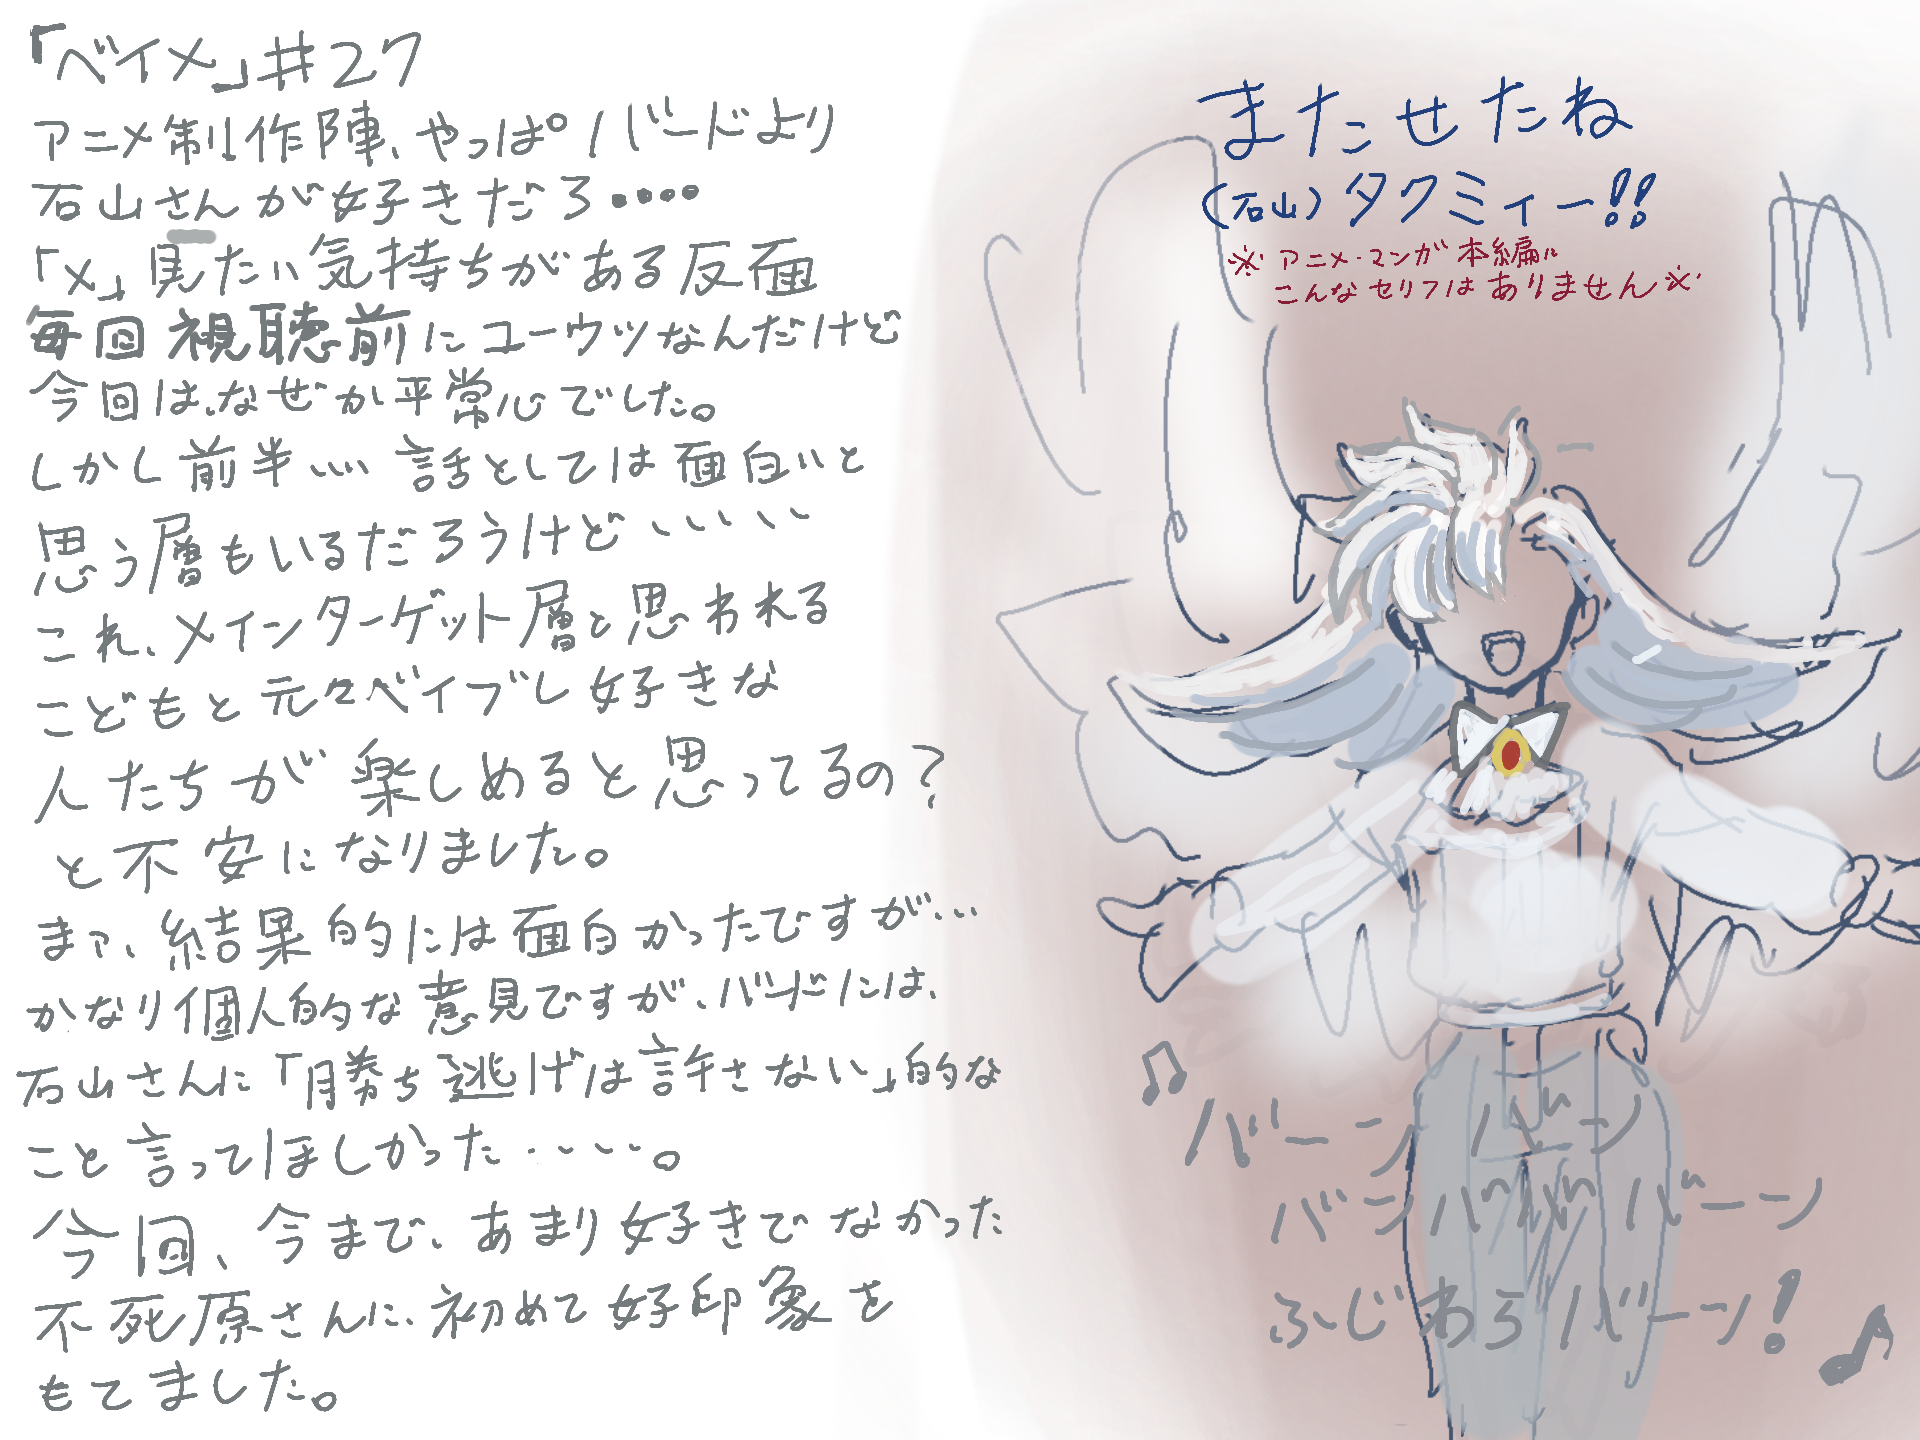 「ベイメ」#27
アニメ制作陣、やっぱバードより
石山さんが好きだろ・・・・
「メ」見たい気持ちがある反面
毎回視聴前にユーウツなんだけど
今回は、なぜか平常心でした。
しかし前半…… 話としては面白いと
思う層もいるだろうけど、、、、、
これ、メインターゲット層と思われる
こどもと元々ベイブレ好きな
人たちが楽しめると思ってるの?
と不安になりました。
まァ、結果的には面白かったですが…
かなり個人的な意見ですが、バードには、
石山さんに「勝ち逃げは許さない」的な
こと言ってほしかった・・・・・。
今回、今まで、あまり好きでなかった
不死原さんに、初めて好印象を
もてました。
またせたね
(石山)タクミィー!!
※アニメ・マンガ本編に
こんなセリフはありません※
♫バーンバーン
バンババババーン
ふじわらバーン!♪